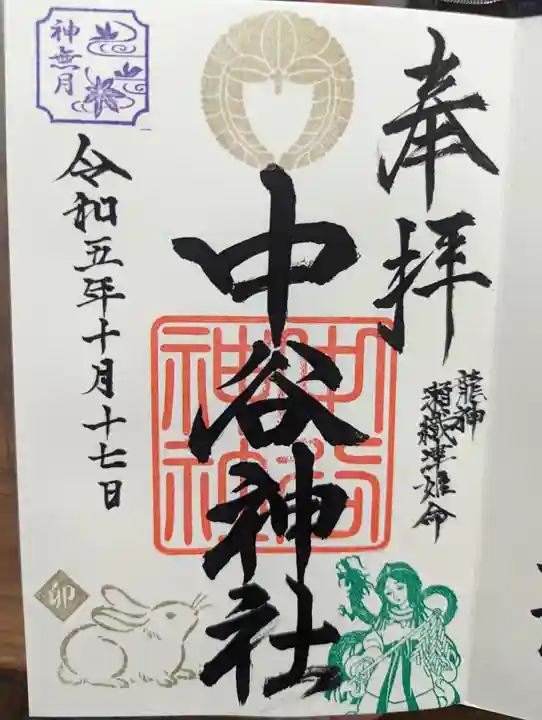 奉拝
龍神
瀬織津姫命
中谷神社
中谷
神社
神無月
令和五年十月十七日
卯